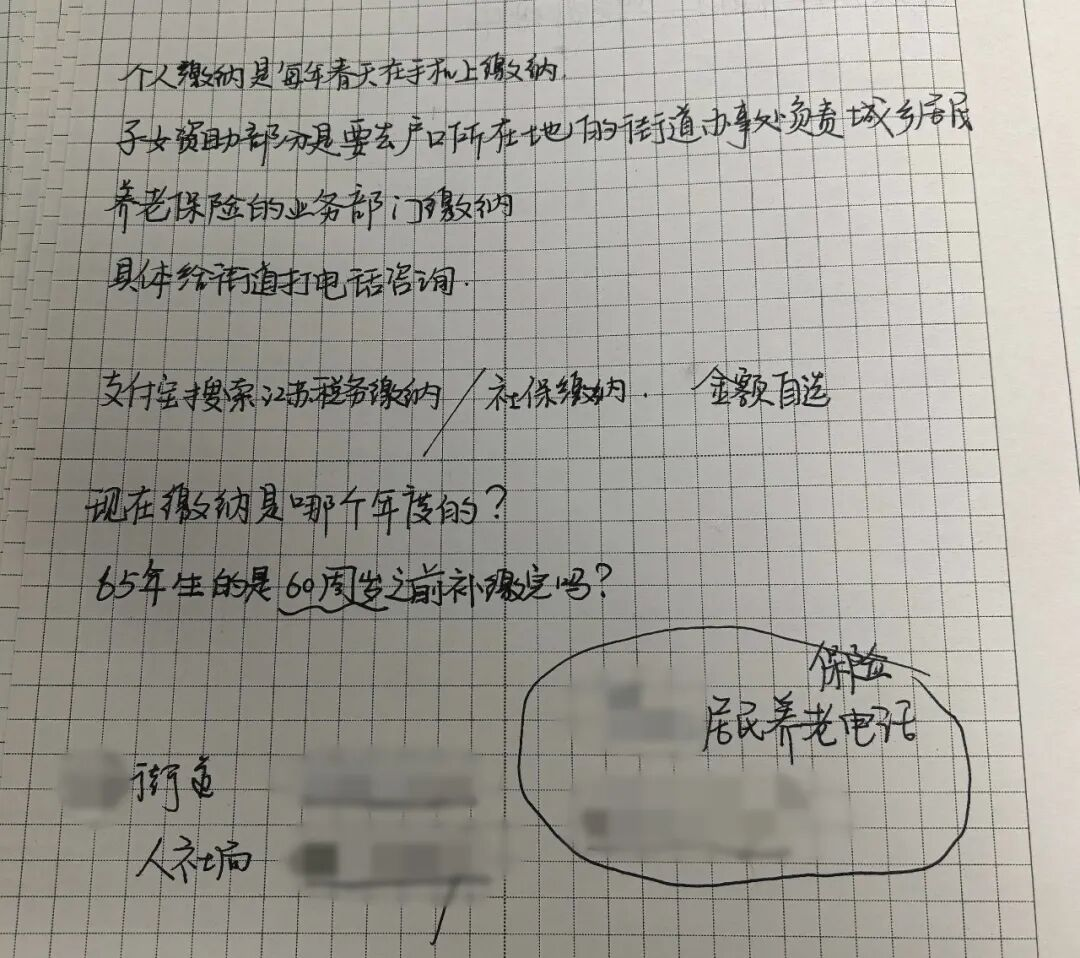 个人缴纳是每年春天在手机上缴纳.
子女资助部分是要去户口所在地的街道办事处负责城乡居民
养老保险的业务部门缴纳
具体给街道打电话咨询.
支付宝搜索江苏税务缴纳 / 社保缴纳. 金额自选
现在缴纳是哪个年度的?
65年生的是60周岁之前补缴完吗?
保险
居民养老电话
街道
人社局